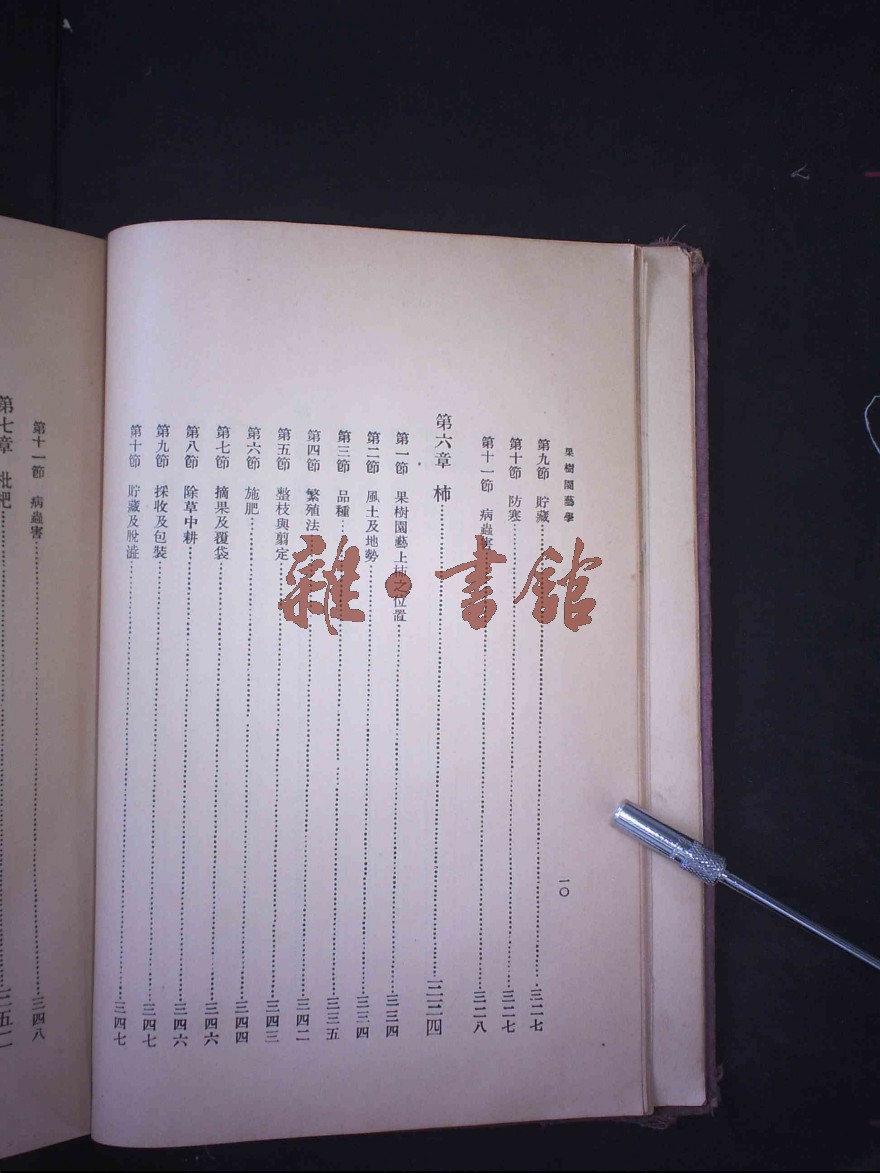 果樹園藝學
一〇
第九節 貯藏……三二七
第十節 防寒……三二七
第十一節 病蟲害……三二八
第六章 柿……三三四
第一節 果樹園藝上柿之位置……三三四
第二節 風土及地勢……三三四
第三節 品種……三三五
第四節 繁殖法……三四二
第五節 整枝與剪定……三四三
第六節 施肥……三四四
第七節 摘果及覆袋……三四六
第八節 除草中耕……三四六
第九節 採收及包裝……三四七
第十節 貯藏及脫澁……三四七
第十一節 病蟲害……三四八
第七章 枇杷……三五二
雜·書館